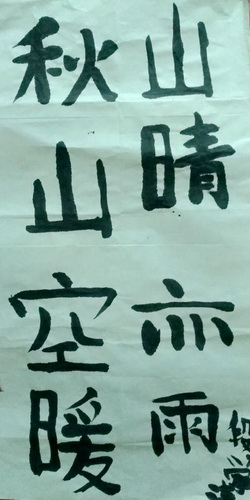 山晴亦雨
秋山空暖